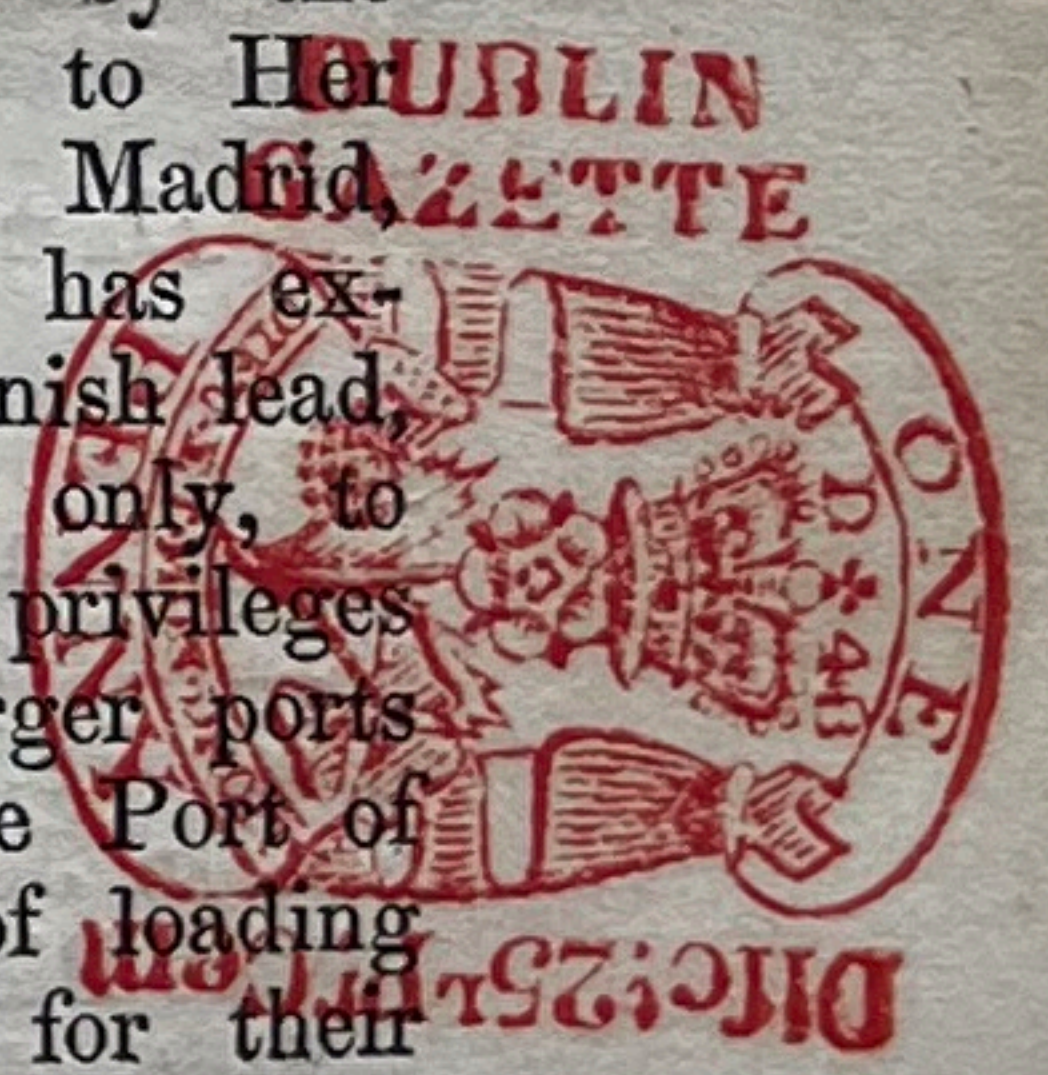 to Her
Madrid,
has ex-
nish lead,
only, to
privileges
rger ports
e Port of
of loading
for their
DUBLIN
GAZETTE
ONE
PENNY
D✤48
Difct: 25 Pr Cent